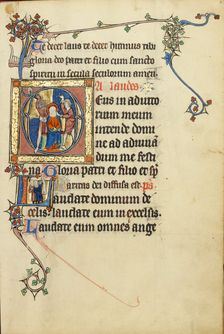 Te decet laus te decet hymnus tibi
gloria deo patri et filio cum sancto
spiritu in secula seculorum amen
A laudes
Deus in adiuto
rium meum
intende domi
ne ad adiuvā
dum me festi
na Gloria patri et filio et
est
Laudate dominum de
celis laudate eum in excelsis
Laudate eum omnes ange